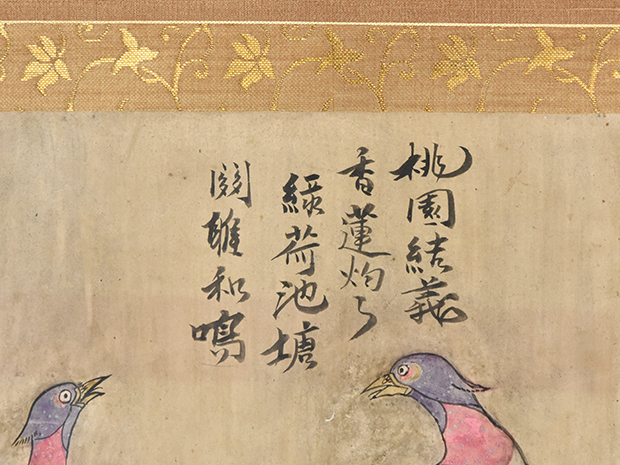 桃園結義
香蓮灼々
綠荷池塘
關雎和鳴